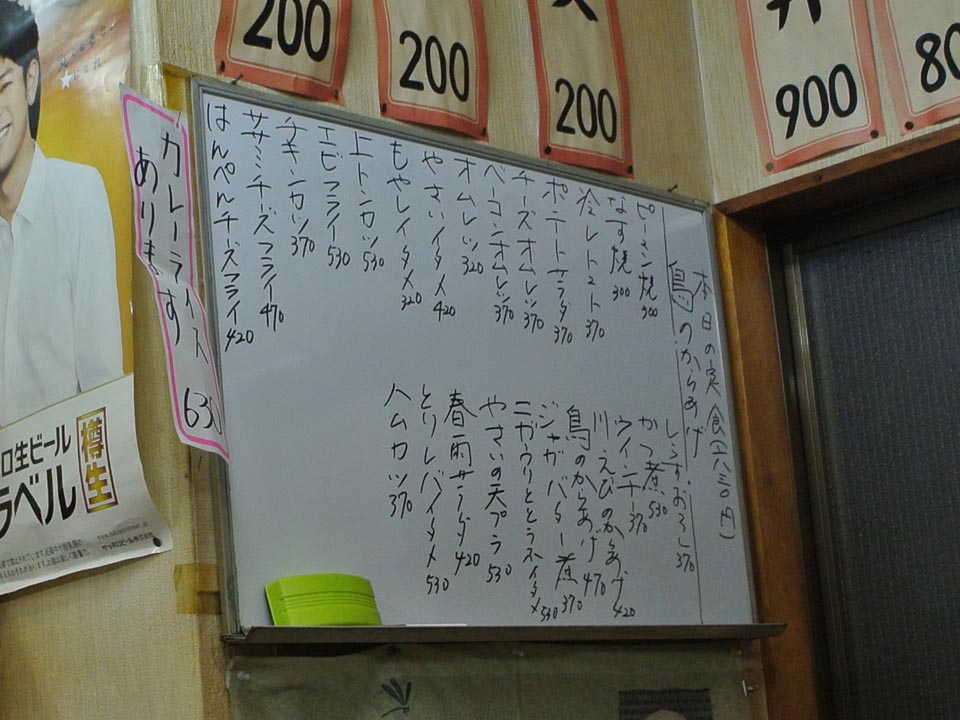 200
200
200
900
80
本日の定食(六三〇円)
鳥のからあげ
ピーマン焼 300
なす焼 300
冷しトマト 370
ポテトサラダ 370
チーズオムレツ 370
ベーコンオムレツ 370
オムレツ 320
やさいイタメ 420
もやしイタメ 320
上トンカツ 530
エビフライ 530
チキンカツ 370
ササミチーズフライ 470
はんぺんチーズフライ 420
しらすおろし 370
かつ煮 530
ウインナー 370
川えびのからあげ 420
鳥のからあげ 470
ジャガバター煮 370
ニガウリととうふイタメ 530
やさいの天プラ 530
春雨サラダ 420
とりレバイタメ 530
ハムカツ 370
カレーライス 630
あります
生ビール
ラベル
樽生
サッポロビール株式会社